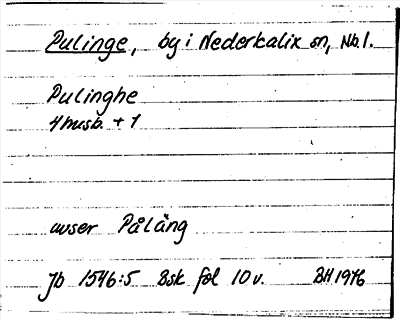 Pulinge, by i Nederkalix sn, Nb.l.
Pulinghe
4 husb. + 1
avser Påläng
Jb 1546:5 Bsk fol 10 v. BH 1976